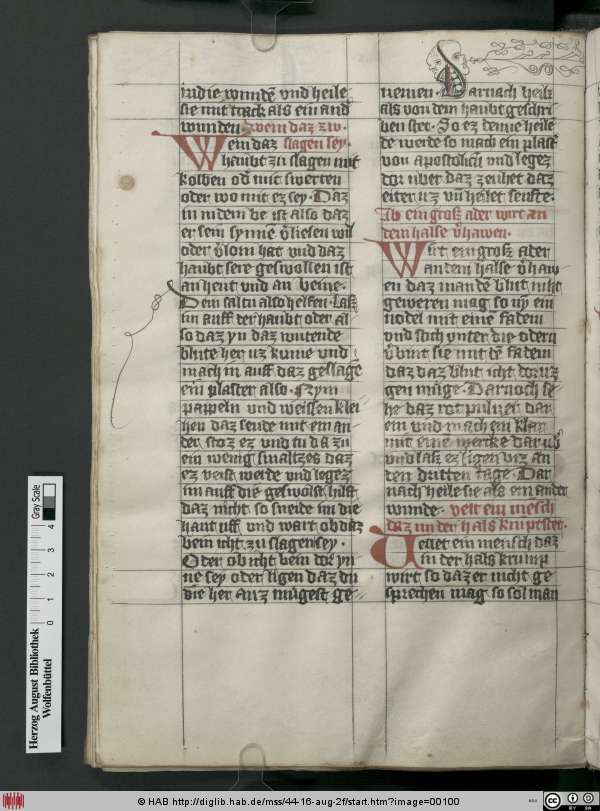 in die wundē vnd heile
sie mit track als ein and
wunden Swem daz zw.
Wem daz slagen sey.
haubt zu slagen mit
kolben od' mit swerten
oder wo mit ez sey. Daz
in indem be ist also daz
er sein synne v'liesen wil
oder v'lorn hat vnd daz
haubt sere geswollen ist
an heut vnd an beine.
Dem saltu also helfen. Lasz
im auff der haubt oder al
so daz yn daz wutende
blute her uz kume vnd
mach im auff daz geslagē
ein plaster also. Nym
pappeln vnd weissen klei
hen daz seude mit ein an
der stoz ez vnd tu da zu
ein wenig smaltzes daz
ez veist werde vnd legez
im auff die geswolst hilft
daz nicht so sneide im die
haut uff vnd wart ob daz
bein icht zu slagen sey.
Oder ob icht bein dor yn
ne sey oder ligen daz du
die her auz mügest ge
nemen. Darnach heilz
als von dem haubt geschri
ben stet. So ez denne heile
de werde so mach ein plast'
von apostolicū vnd legez
dor uber daz zeuhet daz
eiter uz vn̄ heilet senfte.
Ab ein grosz ader wirt an
dem halse v'hawen.
Wirt ein grosz ader
an dem halse v'haw
en daz man de blut niht
geweren mag so nym ein
nodel mit eine fadem
vnd stich vnter die odern
v'bint sie mit dē fadem
daz daz blut icht dor uz
gen müge. Darnoch se
he daz rot puluer dar
ein vnd mach ein klar
mit eine wercke dar ub'
vnd lasz ez ligen biz an
den dritten tage. Dar
nach heile sie als ein ander
wunde. velt ein mesch
daz im der hals krupt ser.
Vellet ein mensch daz
im der hals krump
wirt so daz er nicht ge
sprechen mag so sol man
Herzog August Bibliothek
Wolfenbüttel
0 1 2 3 4
Gray Scale
© HAB http://diglib.hab.de/mss/44-16-aug-2f/start.htm?image=00100
BY SA